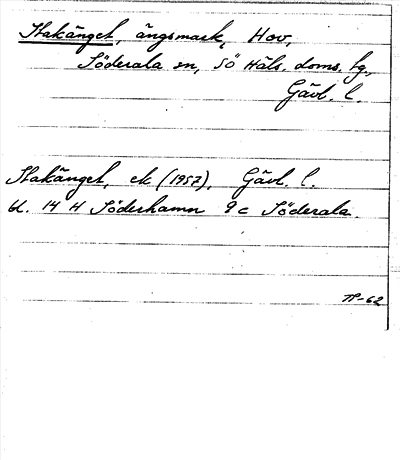 Stakänget, ängsmark, Hov,
Söderala sn, Sö Häls. doms. fg.,
Gävl. l.
Stakänget, ek (1957), Gävl. l.
bl. 14 H Söderhamn 9 c Söderala.
-62